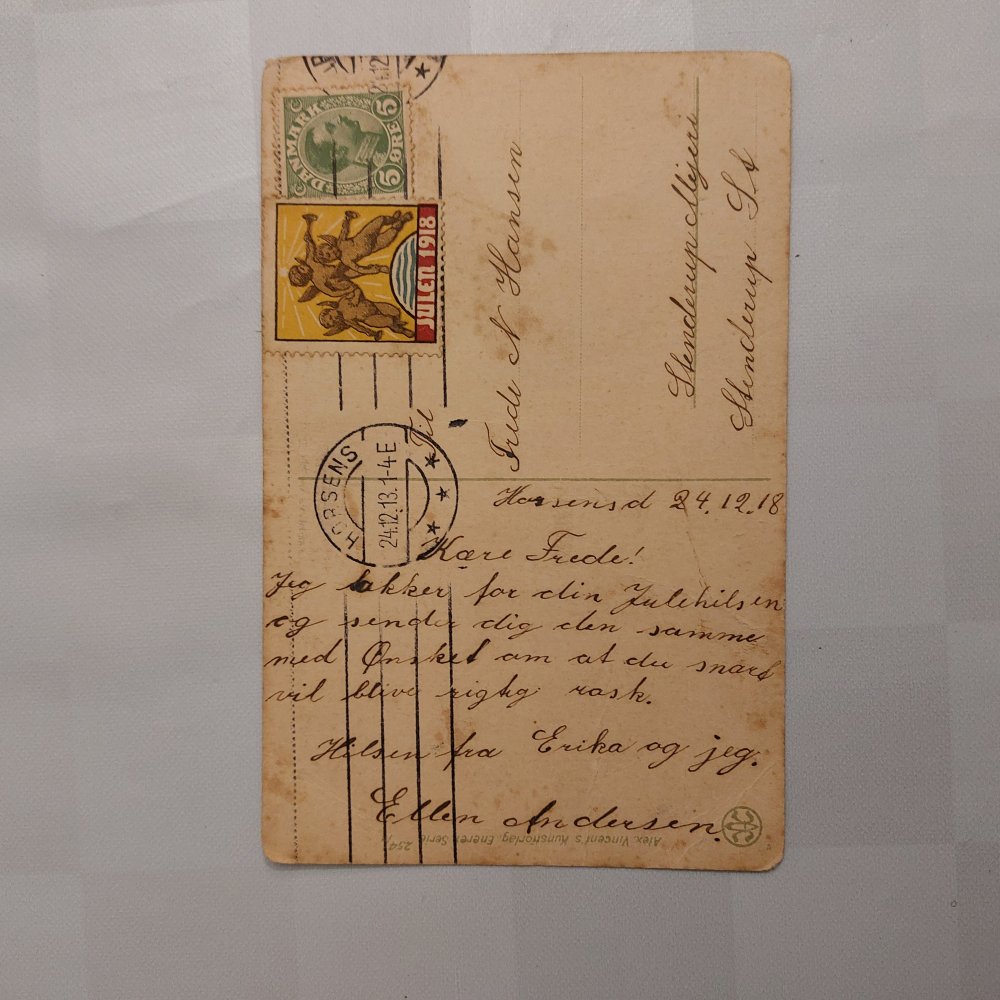 DANMARK
5 5
ØRE
JULEN 1918
HORSENS
24.12.13.1-4E
Til
Frede N Hansen
Stenderup Mejeri
Stenderup St
Horsens d 24.12.18
Kære Frede!
Jeg takker for din Julehilsen
og sender dig den samme
med Ønsket om at du snart
vil blive rigtig rask.
Hilsen fra Erika og jeg.
Ellen Andersen.
Alex. Vincent's Kunstforlag. Eneret Serie 254